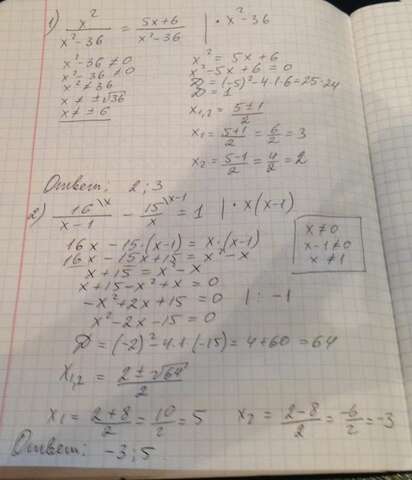 1) x²/(x²-36) = (5x+6)/(x²-36) | · x²-36
x²-36 ≠ 0
x²-36 ≠ 0
x² ≠ 36
x ≠ ±√36
x ≠ ± 6
x² = 5x+6
x²-5x+6 = 0
D = (-5)²-4·1·6 = 25-24
D = 1
x₁,₂ = (5±1)/2
x₁ = (5+1)/2 = 6/2 = 3
x₂ = (5-1)/2 = 4/2 = 2
Ответ: 2; 3
2) 16\x/(x-1) - 15\x-1/x = 1 | · x(x-1)
x ≠ 0
x-1 ≠ 0
x ≠ 1
16x - 15·(x-1) = x·(x-1)
16x - 15x+15 = x²-x
x+15 = x²-x
x+15-x²+x = 0
-x²+2x+15 = 0 | : -1
x²-2x-15 = 0
D = (-2)²-4·1·(-15) = 4+60 = 64
x₁,₂ = (2±√64)/2
x₁ = (2+8)/2 = 10/2 = 5 x₂ = (2-8)/2 = -6/2 = -3
Ответ: -3; 5